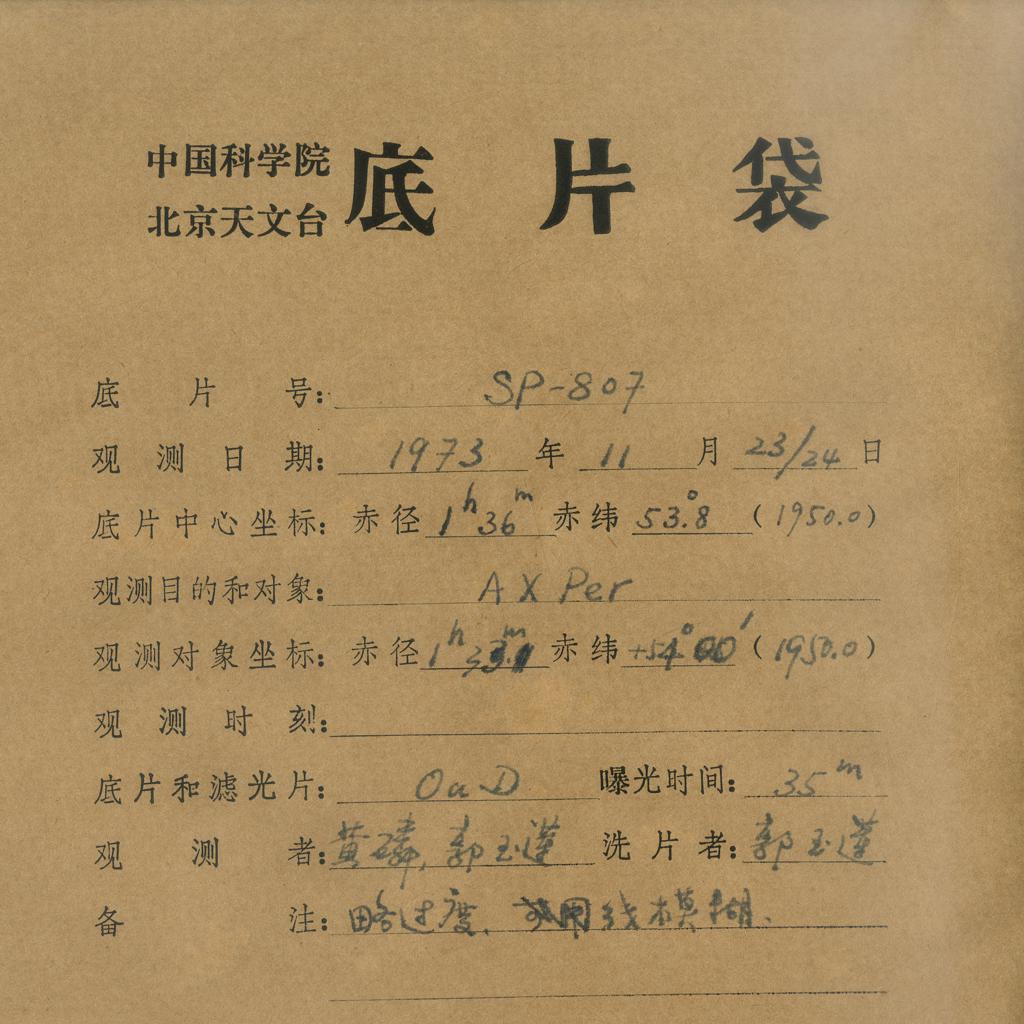 中国科学院
北京天文台
底片袋
底片号: SP-807
观测日期: 1973 年 11 月 23/24 日
底片中心坐标: 赤径 1h 36m 赤纬 53°.8 (1950.0)
观测目的和对象: AX Per
观测对象坐标: 赤径 1h 33.1m 赤纬 +54°00′ (1950.0)
观测时刻:
底片和滤光片: OaD 曝光时间: 35m
观测者: 黄磷, 郭玉莲 洗片者: 郭玉莲
备注: 略过度、 线模糊.